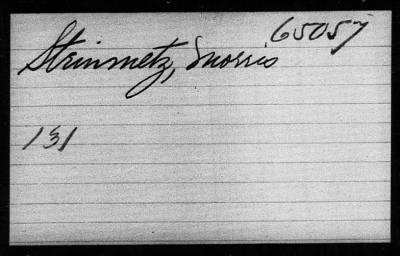 65057
Steinmetz, Morris
131